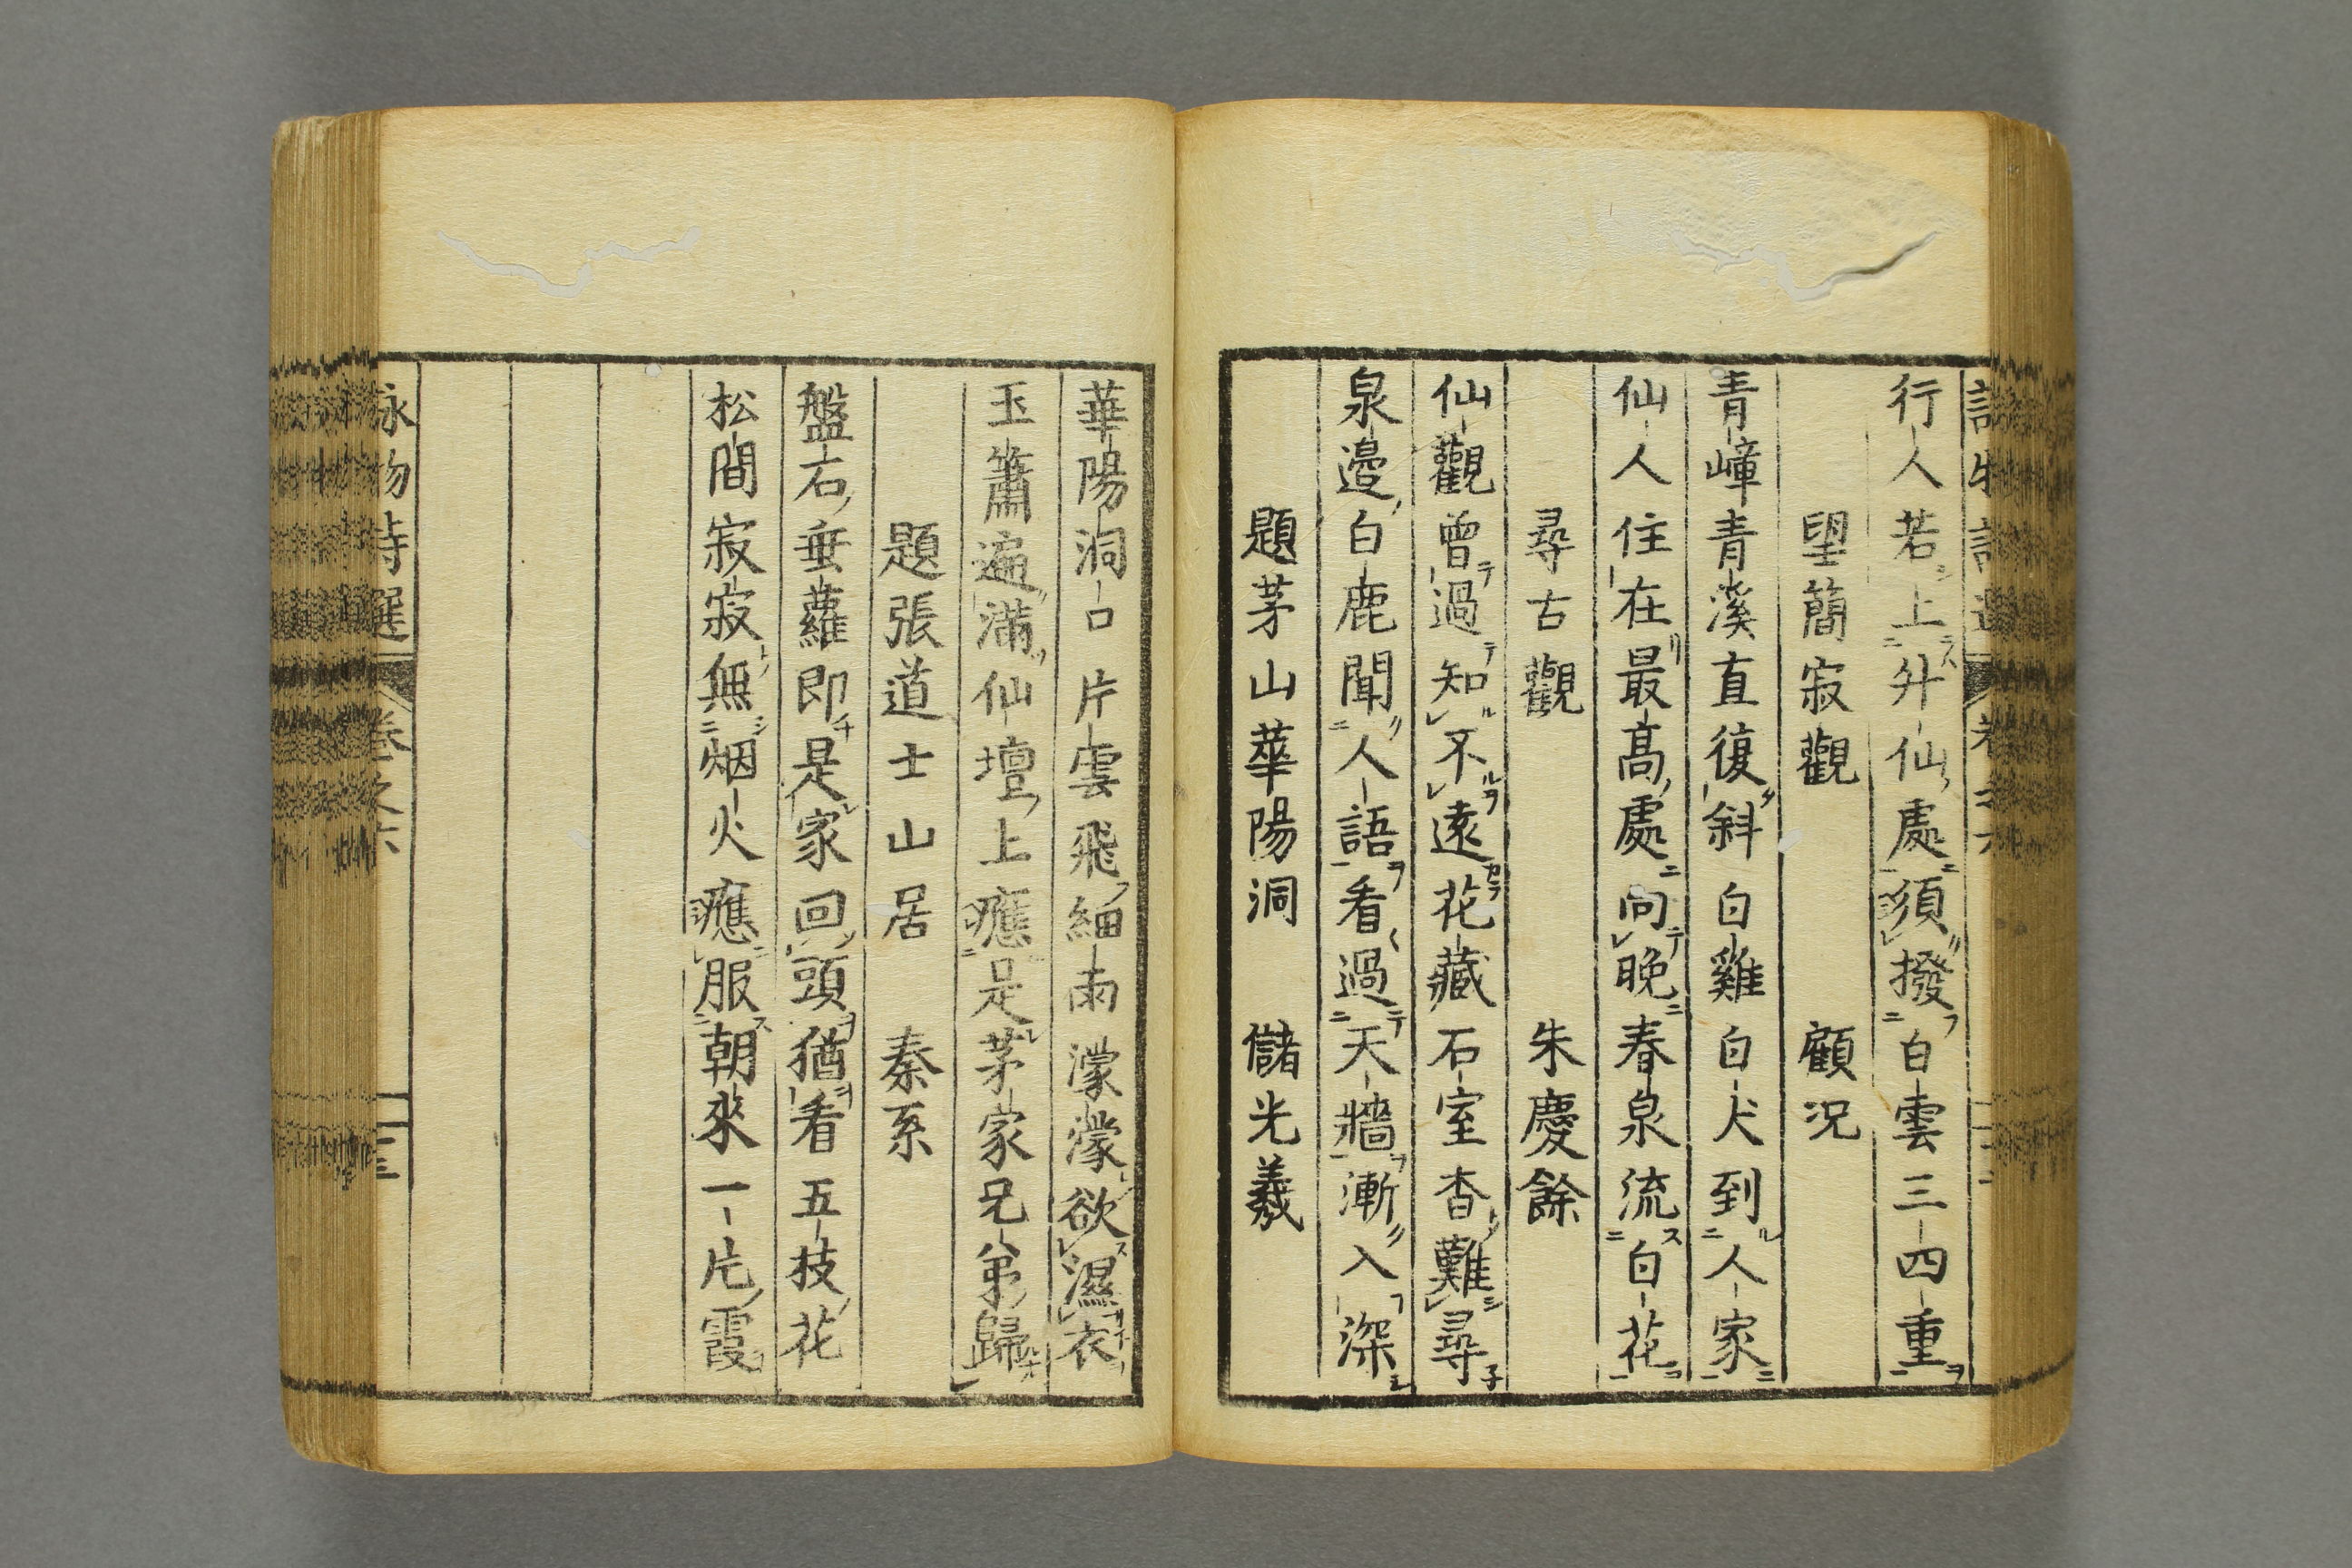 行人若上升仙處須撥白雲三四重
望簡寂觀　顧況
青嶂青溪直復斜白雞白犬到人家
仙人住在最高處向晚春泉流白花
尋古觀　朱慶餘
仙觀曾過知不遠花藏石室杳難尋
泉邊白鹿聞人語看過天牆漸入深
題茅山華陽洞　儲光羲
華陽洞口片雲飛細雨濛濛欲濕衣
玉簫遍滿仙壇上應是茅家兄弟歸
題張道士山居　秦系
盤石垂蘿即是家回頭猶看五枝花
松間寂寂無烟火應服朝來一片霞
詠物詩選　卷之六